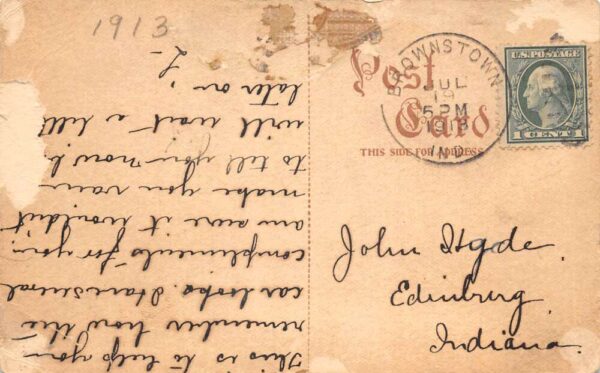 1913
Post Card
THIS SIDE FOR ADDRESS
BROWNSTOWN
JUL
19
5 PM
1913
IND.
U.S. POSTAGE
1 CENT 1
John Hyde.
Edinburg
Indiana.
This is to help you
remember how the
car looks. Have several
compliments for you.
am sure it wouldn't
make you vain
to tell you now
will wait till
later on, L-